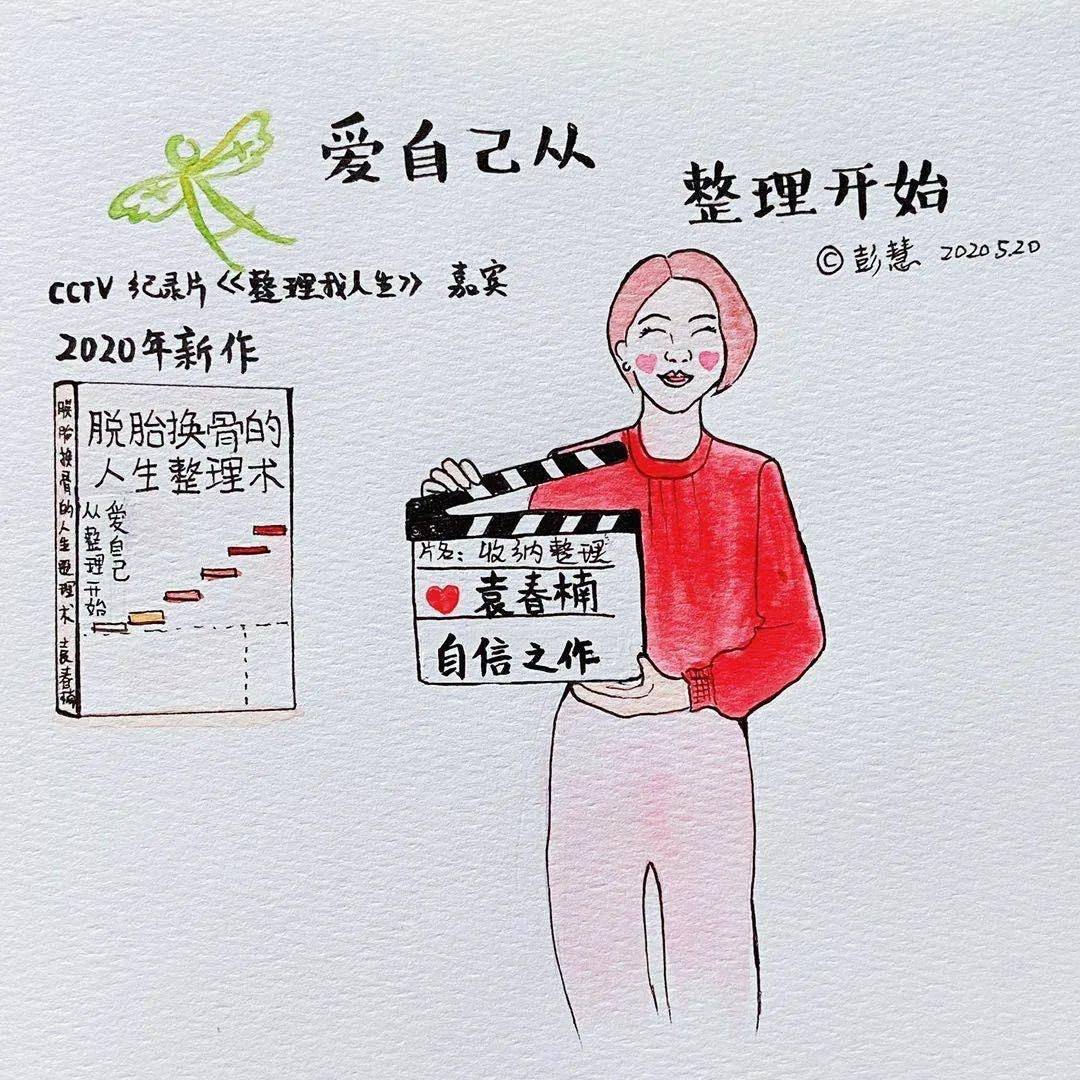 爱自己从
整理开始
©彭慧 2020 5.20
CCTV 纪录片《整理我人生》 嘉宾
2020年新作
脱胎换骨的人生整理术 袁春楠
脱胎换骨的
人生整理术
爱自己
从整理开始
片名：收纳整理
袁春楠
自信之作